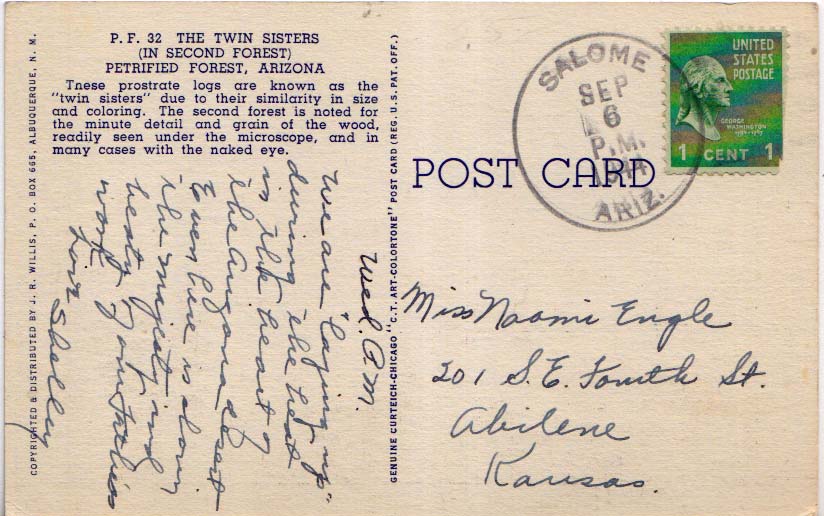 P. F. 32 THE TWIN SISTERS
(IN SECOND FOREST)
PETRIFIED FOREST, ARIZONA
Tnese prostrate logs are known as the
"twin sisters" due to their similarity in size
and coloring. The second forest is noted for
the minute detail and grain of the wood,
readily seen under the microscope, and in
many cases with the naked eye.
COPYRIGHTED & DISTRIBUTED BY J. R. WILLIS, P. O. BOX 665, ALBUQUERQUE, N. M.
Wed. P.M.
We are "laying up"
during the heat
in the heart of
the Arizona desert
Even here is shown
the majesty and
beaty of our Fathers
work.
Shelley
GENUINE CURTEICH-CHICAGO "C.T. ART-COLORTONE" POST CARD (REG. U.S. PAT. OFF.)
POST CARD
SALOME
SEP
6
P.M.
1944
ARIZ.
UNITED
STATES
POSTAGE
GEORGE
WASHINGTON
1 CENT 1
Miss Naomi Engle
201 S.E. Fourth St.
Abilene
Kansas.